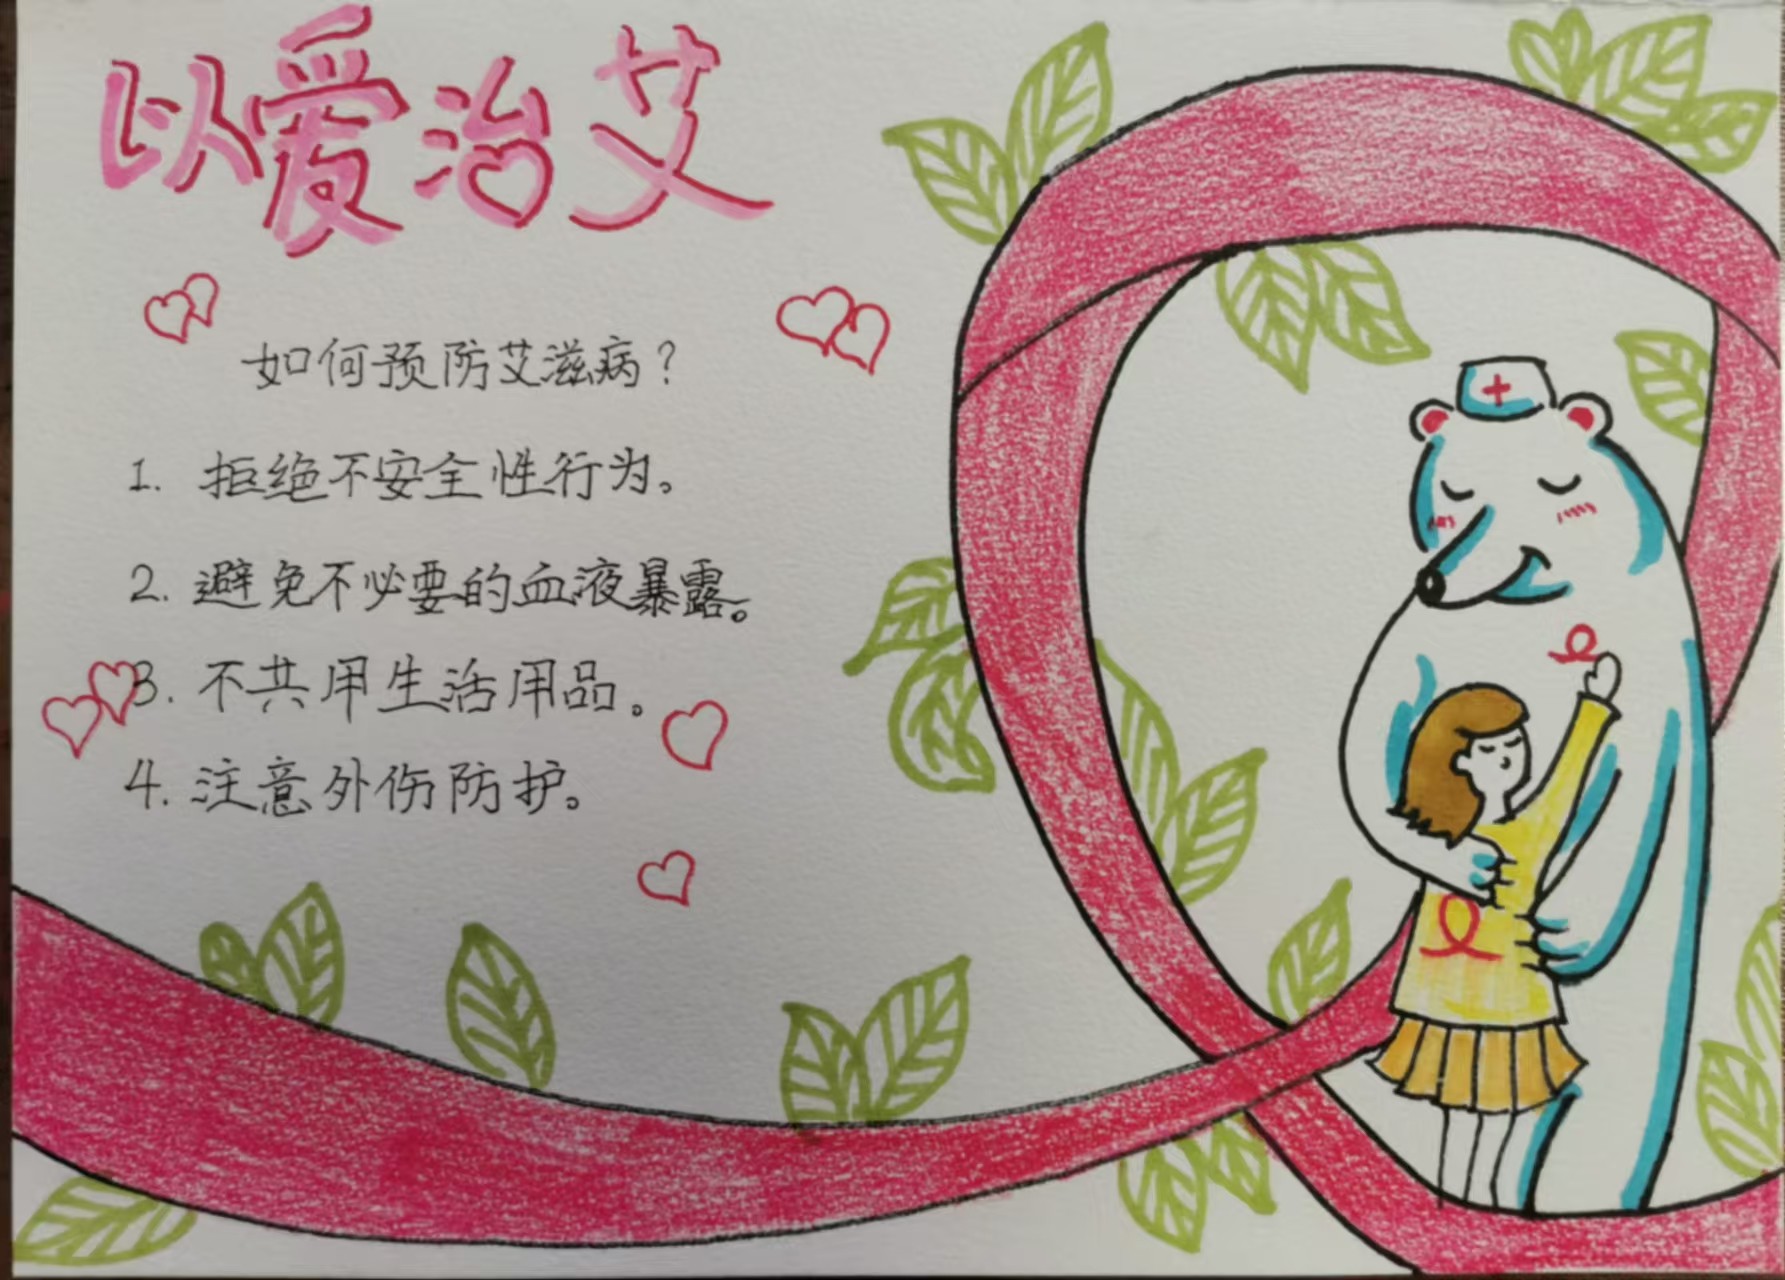 以爱治艾
如何预防艾滋病？
1. 拒绝不安全性行为。
2. 避免不必要的血液暴露。
3. 不共用生活用品。
4. 注意外伤防护。